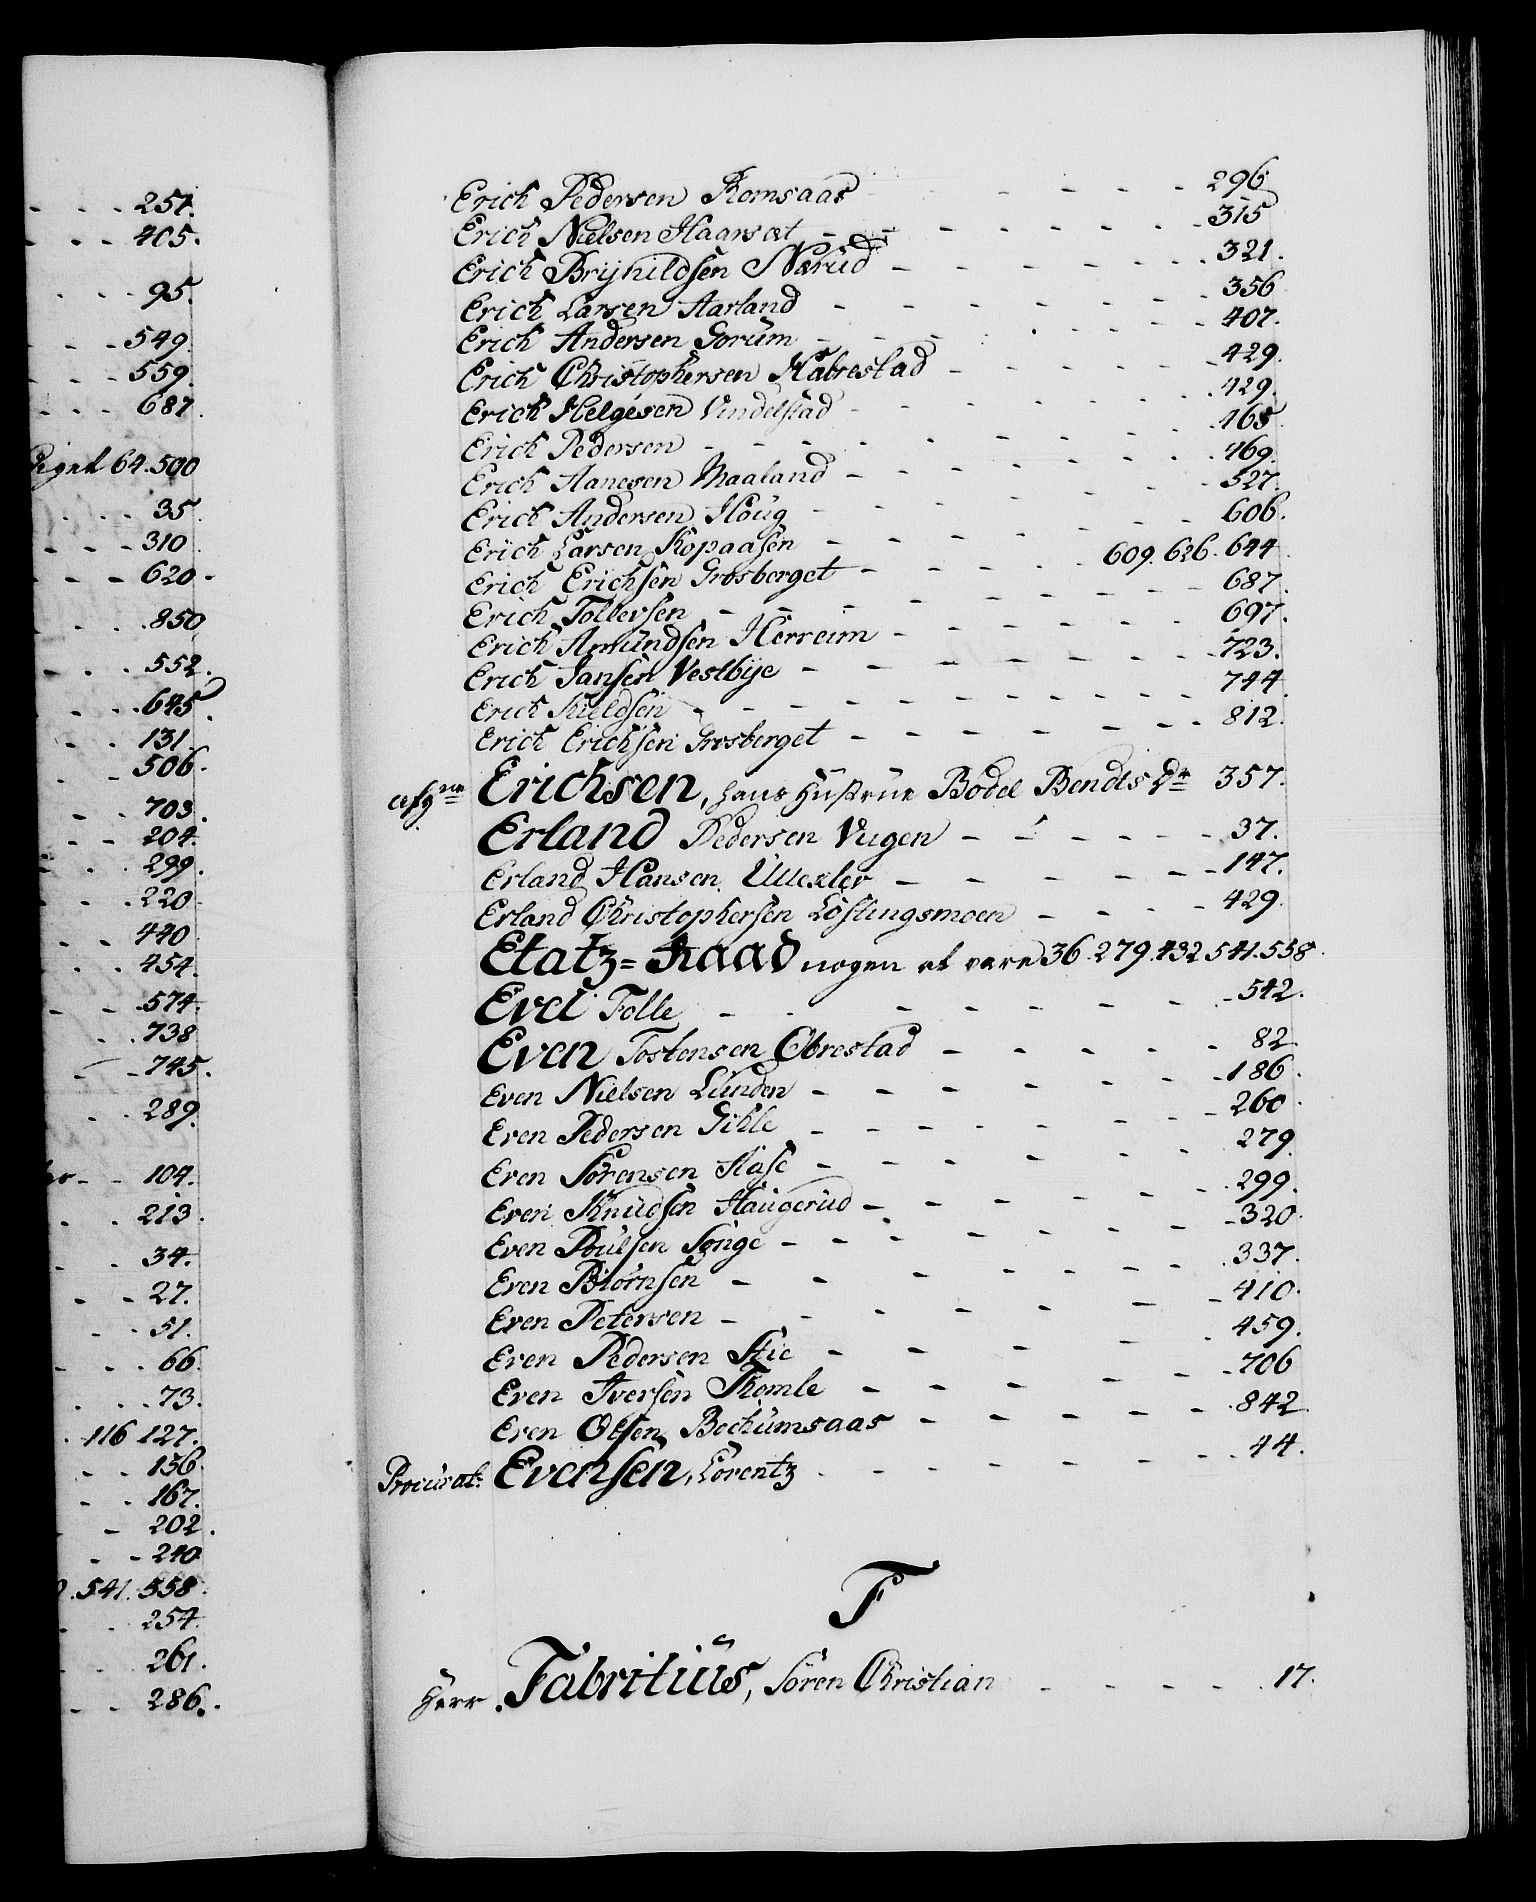 251.
405.
95.
549.
559.
687.
64.500
35.
310.
620.
850
552.
645.
131.
506.
703.
204.
299.
220
440
454.
574.
738
745.
289.
104.
213.
34.
27.
51.
66.
73.
116 127.
156.
167.
202.
240
541. 558.
254.
261.
286.
Erich Pedersen Romsaas - - - - 296.
Erich Nielsen Haarsæt - - - - 315
Erich Brÿnildsen Nærud - - - - 321.
Erich Larsen Aarland - - - - 356
Erich Andersen Gorüm - - - - 407.
Erich Christophersen Habrestad - - - - 429.
Erich Helgesen Vindelstad - - - - 429.
Erich Pedersen - - - - 465.
Erich Aanesen Maaland - - - - 469.
Erich Andersen Houg - - - - 527.
Erich Larsen Kopaasen - - - - 606.
Erich Erichsen Grosberget - - - - 609. 626. 644
Erich Tollevsen - - - - 687.
Erich Amündsen Herreim - - - - 697.
Erich Jansen Vestbÿe - - - - 723.
Erich Kieldsen - - - - 744.
Erich Erichsen Grosberget - - - - 812.
afgne Erichsen, hans Hustrue Bodel Bendts Dr 357.
Erland Pedersen Vugen - - - - 37.
Erland Hansen Ullexlev - - - - 147.
Erland Christophersen Löstingsmoen - - - - 429.
Etatz=Raad nogen at være 36. 279. 432 541. 558.
Evel Tolle - - - - 542.
Even Tostensen Obrestad - - - - 82.
Even Nielsen Lunden - - - - 186.
Even Pedersen Gihle - - - - 260.
Even Sörensen Aase - - - - 279.
Even Knudsen Haugerud - - - - 299.
Even Poulsen Songe - - - - 320.
Even Biörnsen - - - - 337.
Even Petersen - - - - 410.
Even Pedersen Stie - - - - 459.
Even Iversen Tomle - - - - 706
Even Olsen Bochumsaas - - - - 842.
Procurat: Evensen, Lorentz - - - - 44.
F
Herr Fabritiüs, Sören Christian - - - - 17.